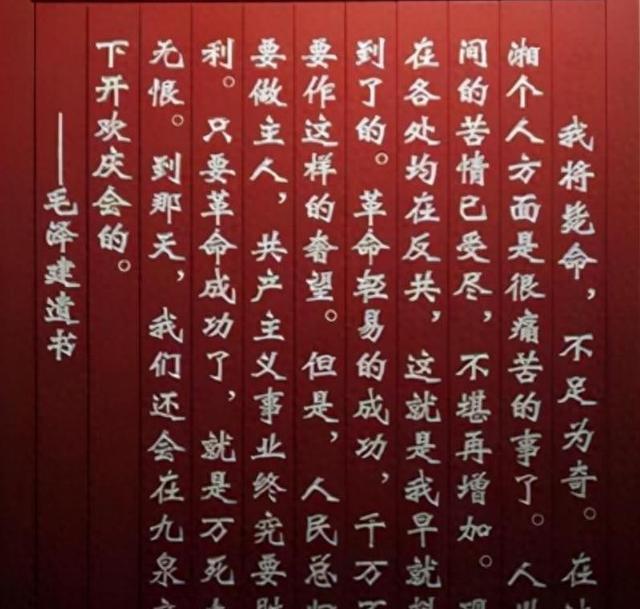 我将毙命，不足为奇。在
湘个人方面是很痛苦的事了。人
间的苦情已受尽，不堪再增加。
在各处均在反共，这就是我早就
到了的。革命轻易的成功，千万
要作这样的奢望。但是，人民总
要做主人，共产主义事业终究要
利。只要革命成功了，就是万死
无恨。到那天，我们还会在九泉
下开欢庆会的。
——毛泽建遗书